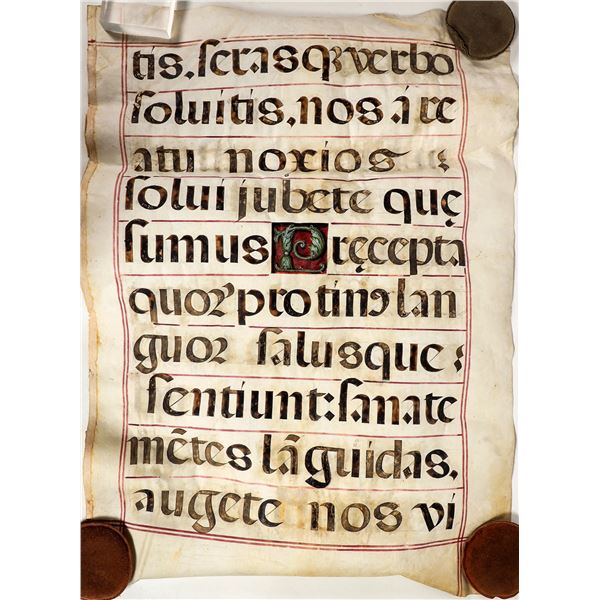 tis, seras qꝫ verbo
soluitis, nos á re
atu noxios
solui jubete quę
sumus Pręcepta
quoꝝ protinꝰ lan
guor salusque
sentiunt: sanate
mẽtes lãguidas,
augete nos vi